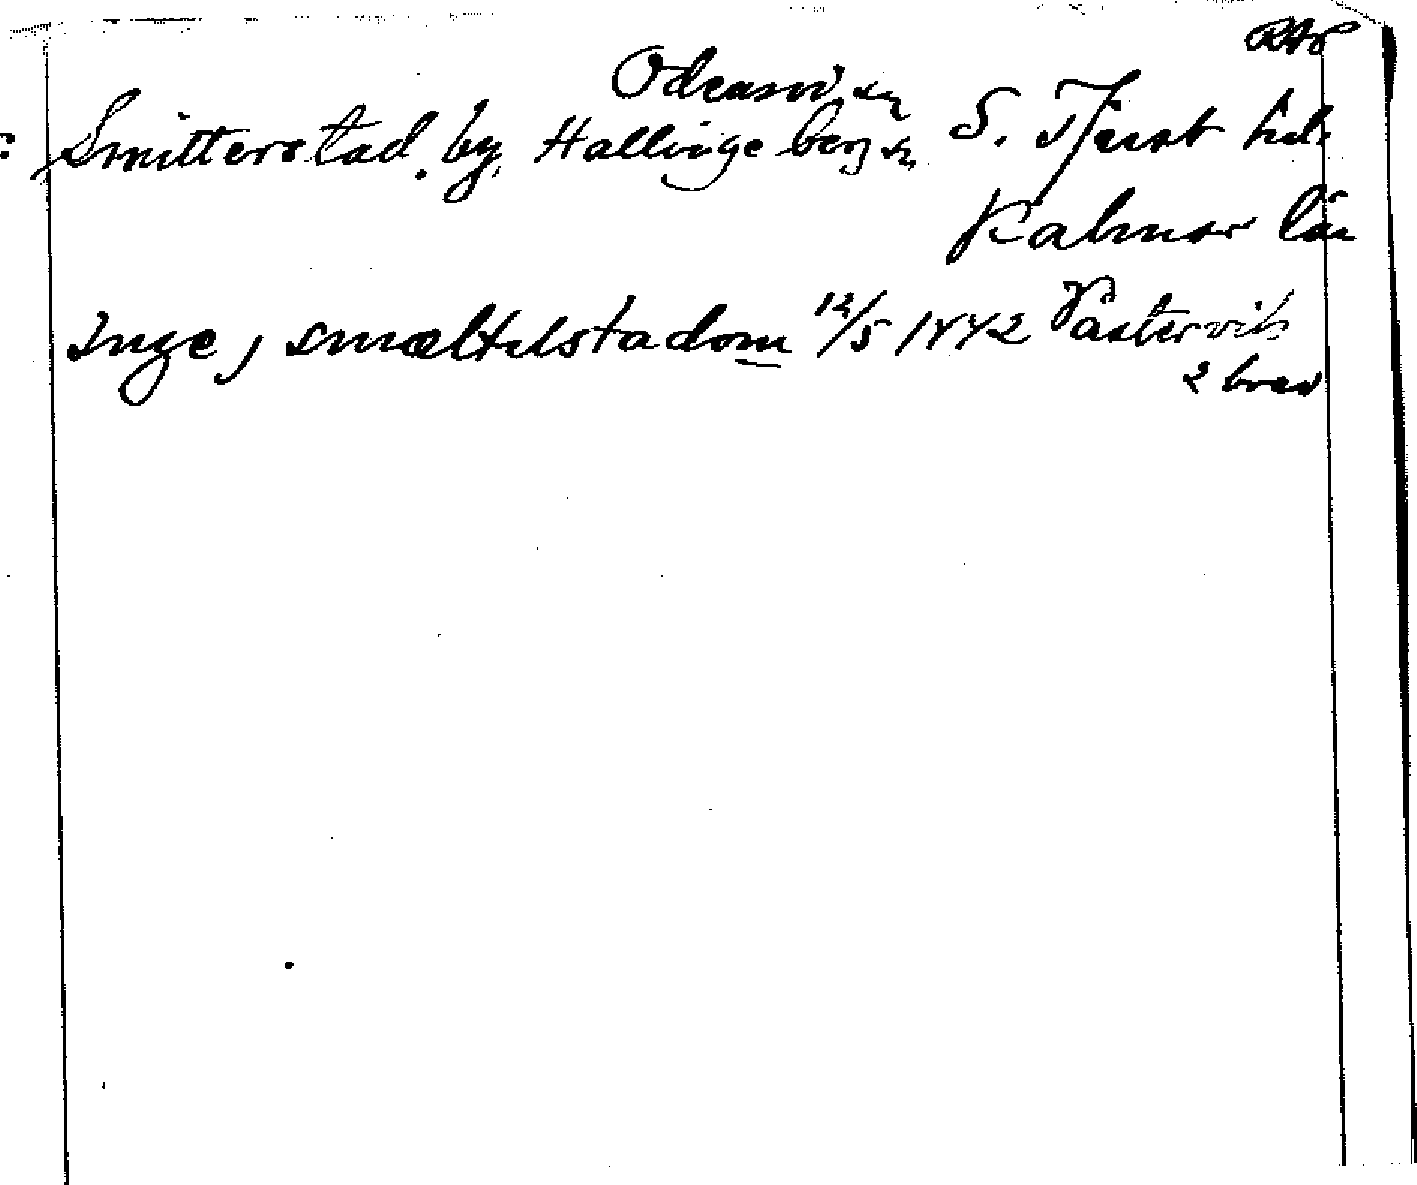 RAP
Odensvi sn
Smitterstad, by, Hallingeberg sn S. Tjust hd.
Kalmar län
Inge, smæltilstadom 12/5 1442 Västervik
2 brev